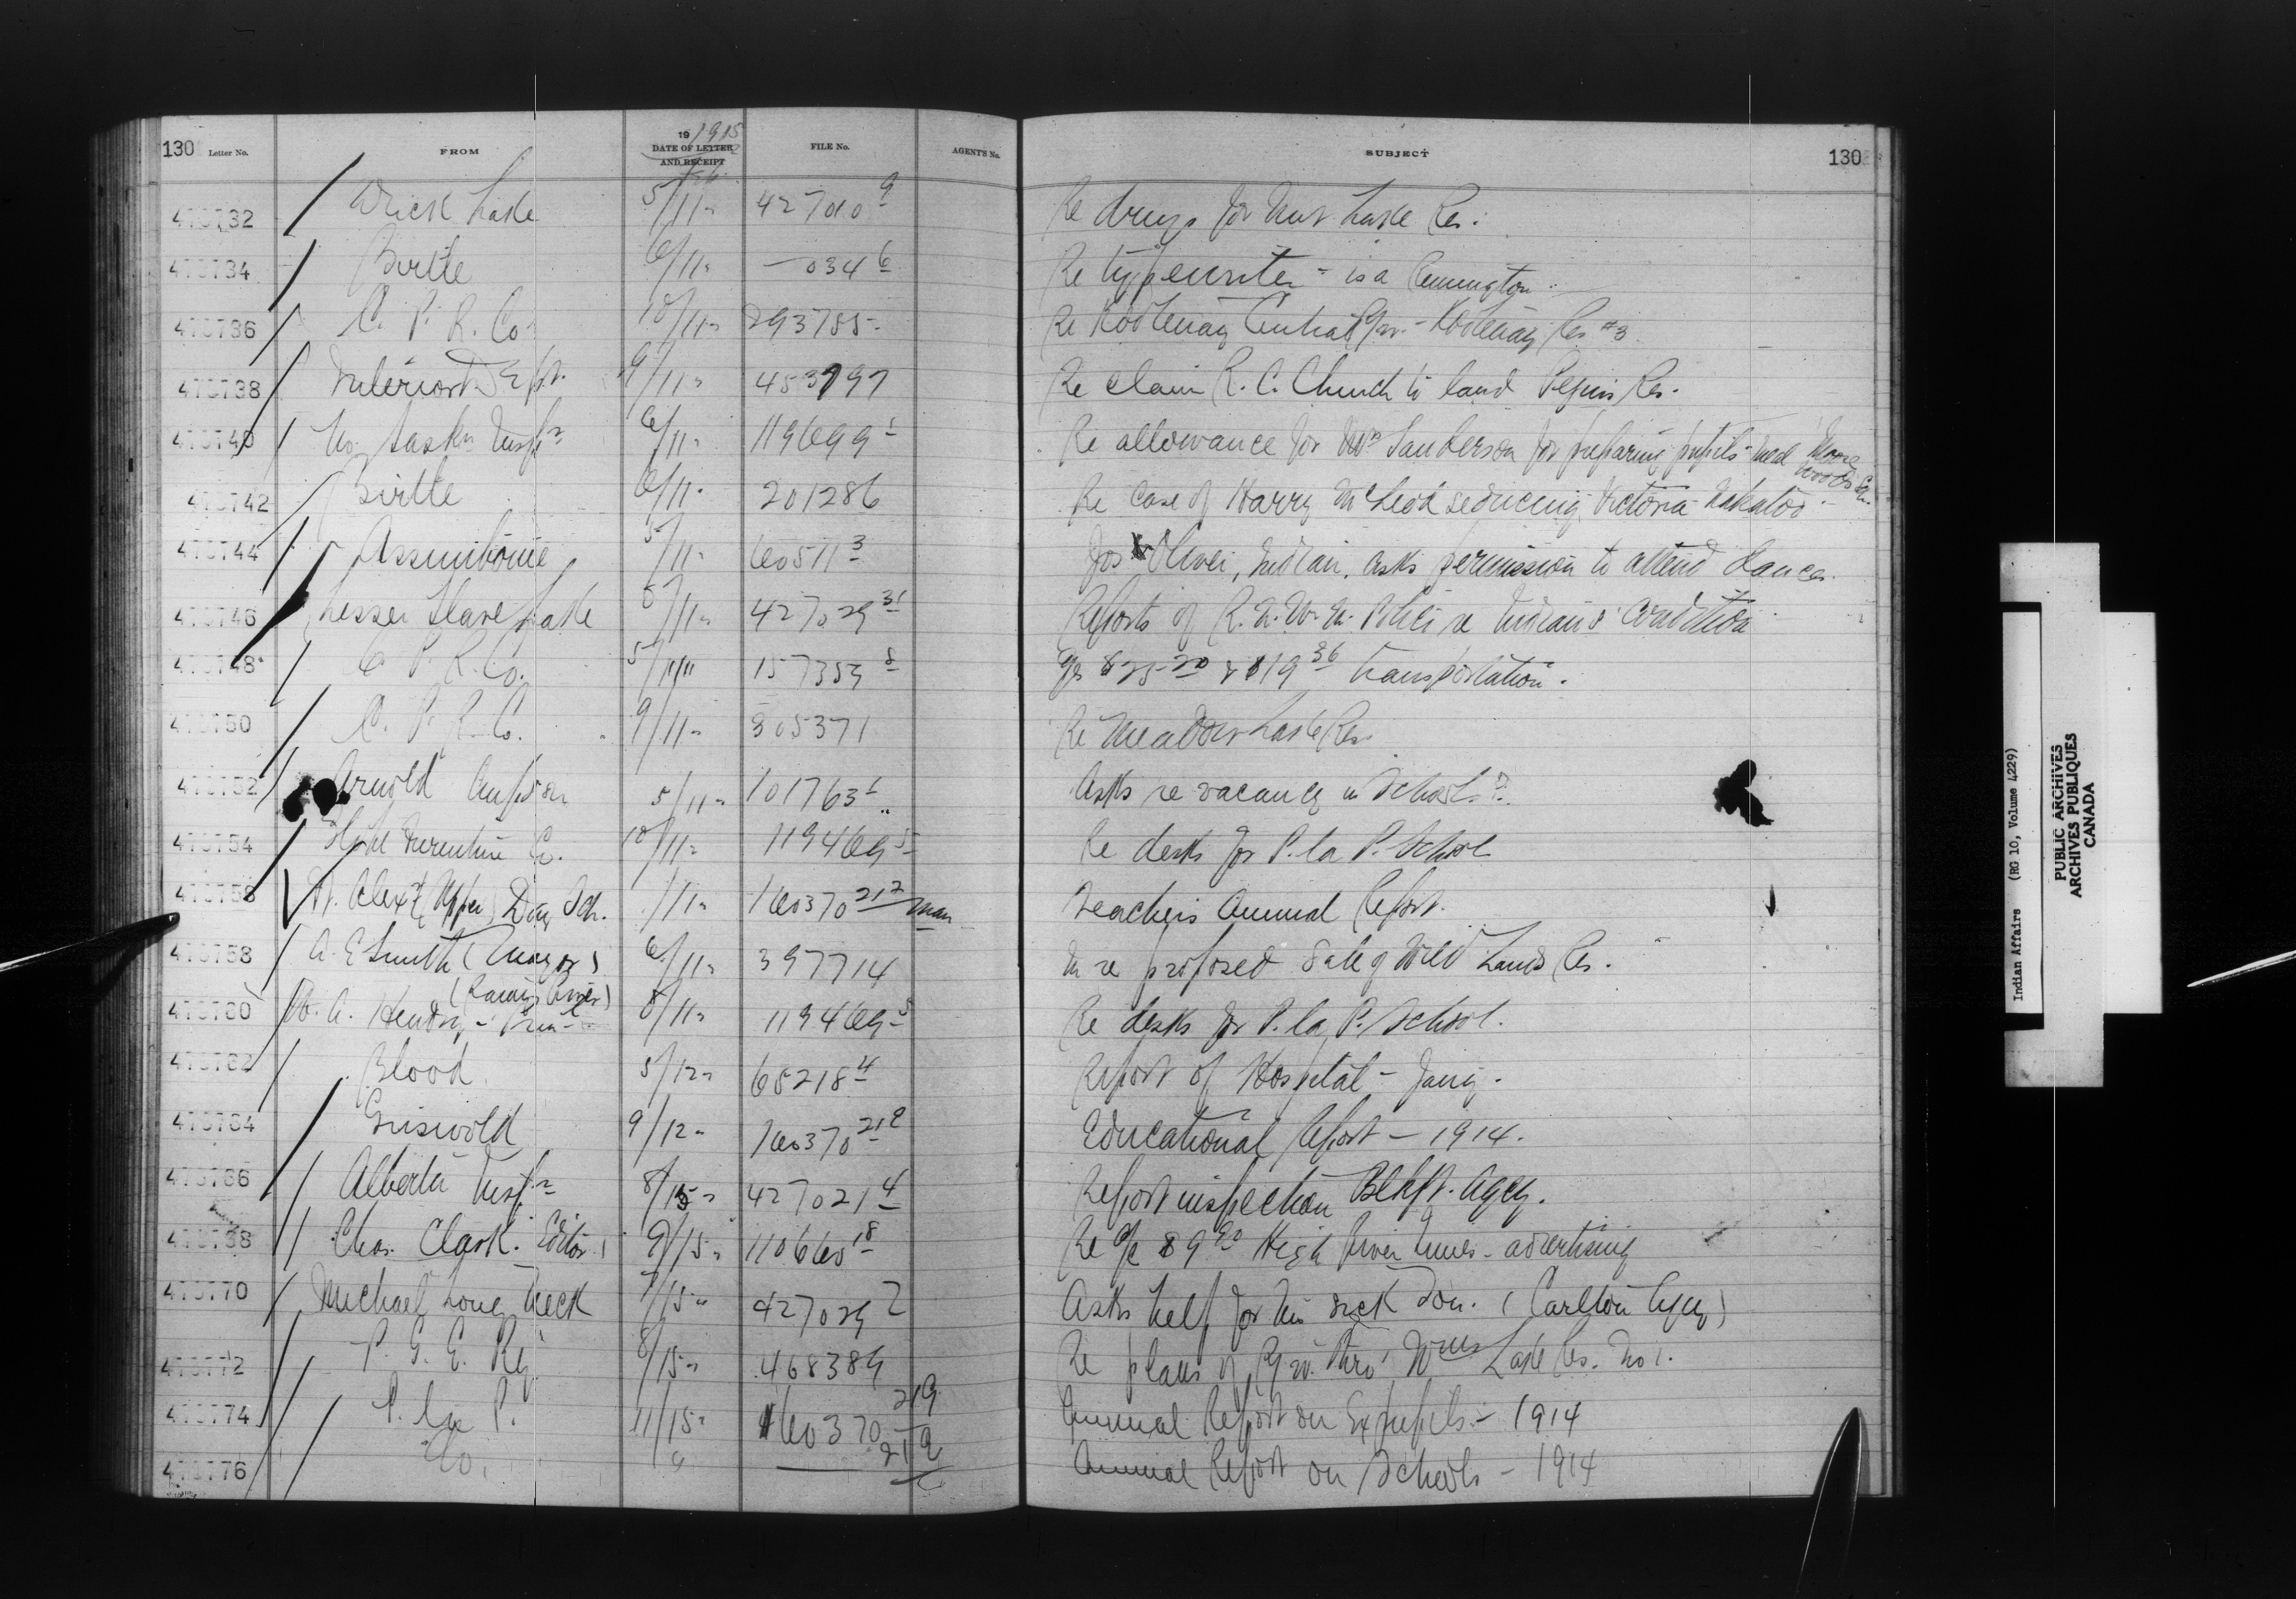 130 Letter No. FROM 19 1915 DATE OF LETTER AND RECEIPT Feb. FILE No. AGENT'S No. SUBJECT 130
470732 Lake 5/11 " 427010 9 Re drugs for Nut Lake Res.
470734 Birtle 6/11 " 034 6 Re typewriter - is a Remington.
470736 C. P. R. Co. 10/11 " 293785 Re Kootenay Central Ry. - Kootenay Res #3
470738 Interior Dept. 9/11 " 453797 Re claim R. C. Church to land Peguis Res.
470740 No. Saskn Inspr 6/11 " 119699 1 Re allowance for Sanderson for preparing pupils' meal Moore Woods Sch.
470742 Birtle 6/11 " 201286 Re case of Harry McLeod seducing Victoria
470744 Assiniboine 5/11 " 60511 3 Jos Oliver, Indian, asks permission to attend dances.
470746 Lesser Slave Lake 8/11 " 427029 31 Reports of R.N.W.M. Police re Indians' condition
470748 C. P. R. Co. 5/11 " 157359 8 & $19 36 transportation.
470750 C. P. R. Co. 9/11 " 305371 Re Meadow Lake Res.
470752 Arnold 5/11 " 101763 1 Asks re vacancy in School.
470754 Furniture Co. 10/11 " 119469 5 Re desks for P. la P. School
470756 St. Alex (Upper) Day Sch. /11 " 160370 21 2 man Teacher's Annual Report.
470758 A. E. Smith (Mayor) 6/11 " 397714 In re proposed sale of Wild Lands Res.
(Rainy River)
470760 W. A. Hendry - Prinl 8/11 " 119469 5 Re desks for P. la P. School.
470762 Blood 5/12 " 68218 4 Report of Hospital - Jany.
470764 Griswold 9/12 " 160370 21 2 Educational Report - 1914.
470766 Alberta Inspr 8/15 " 427021 4 Report inspection Blkft. Agcy.
470768 Chas. Clark. Editor 9/15 " 110660 18 Re a/c $9 High River Times - advertising
470770 Michael Long Neck 7/15 " 427029 2 Asks help for his sick son. (Carlton Agcy)
470772 P. G. E. Ry 8/15 " 468389 Re plans of Ry. thro' Wms Lake Res. No 1.
470774 P. la P. 11/15 " 160370 21 9 Annual Report on Ex pupils - 1914
470776 do. " 21 9 Annual Report on Schools - 1914
Indian Affairs (RG 10, Volume 4229)
PUBLIC ARCHIVES
ARCHIVES PUBLIQUES
CANADA